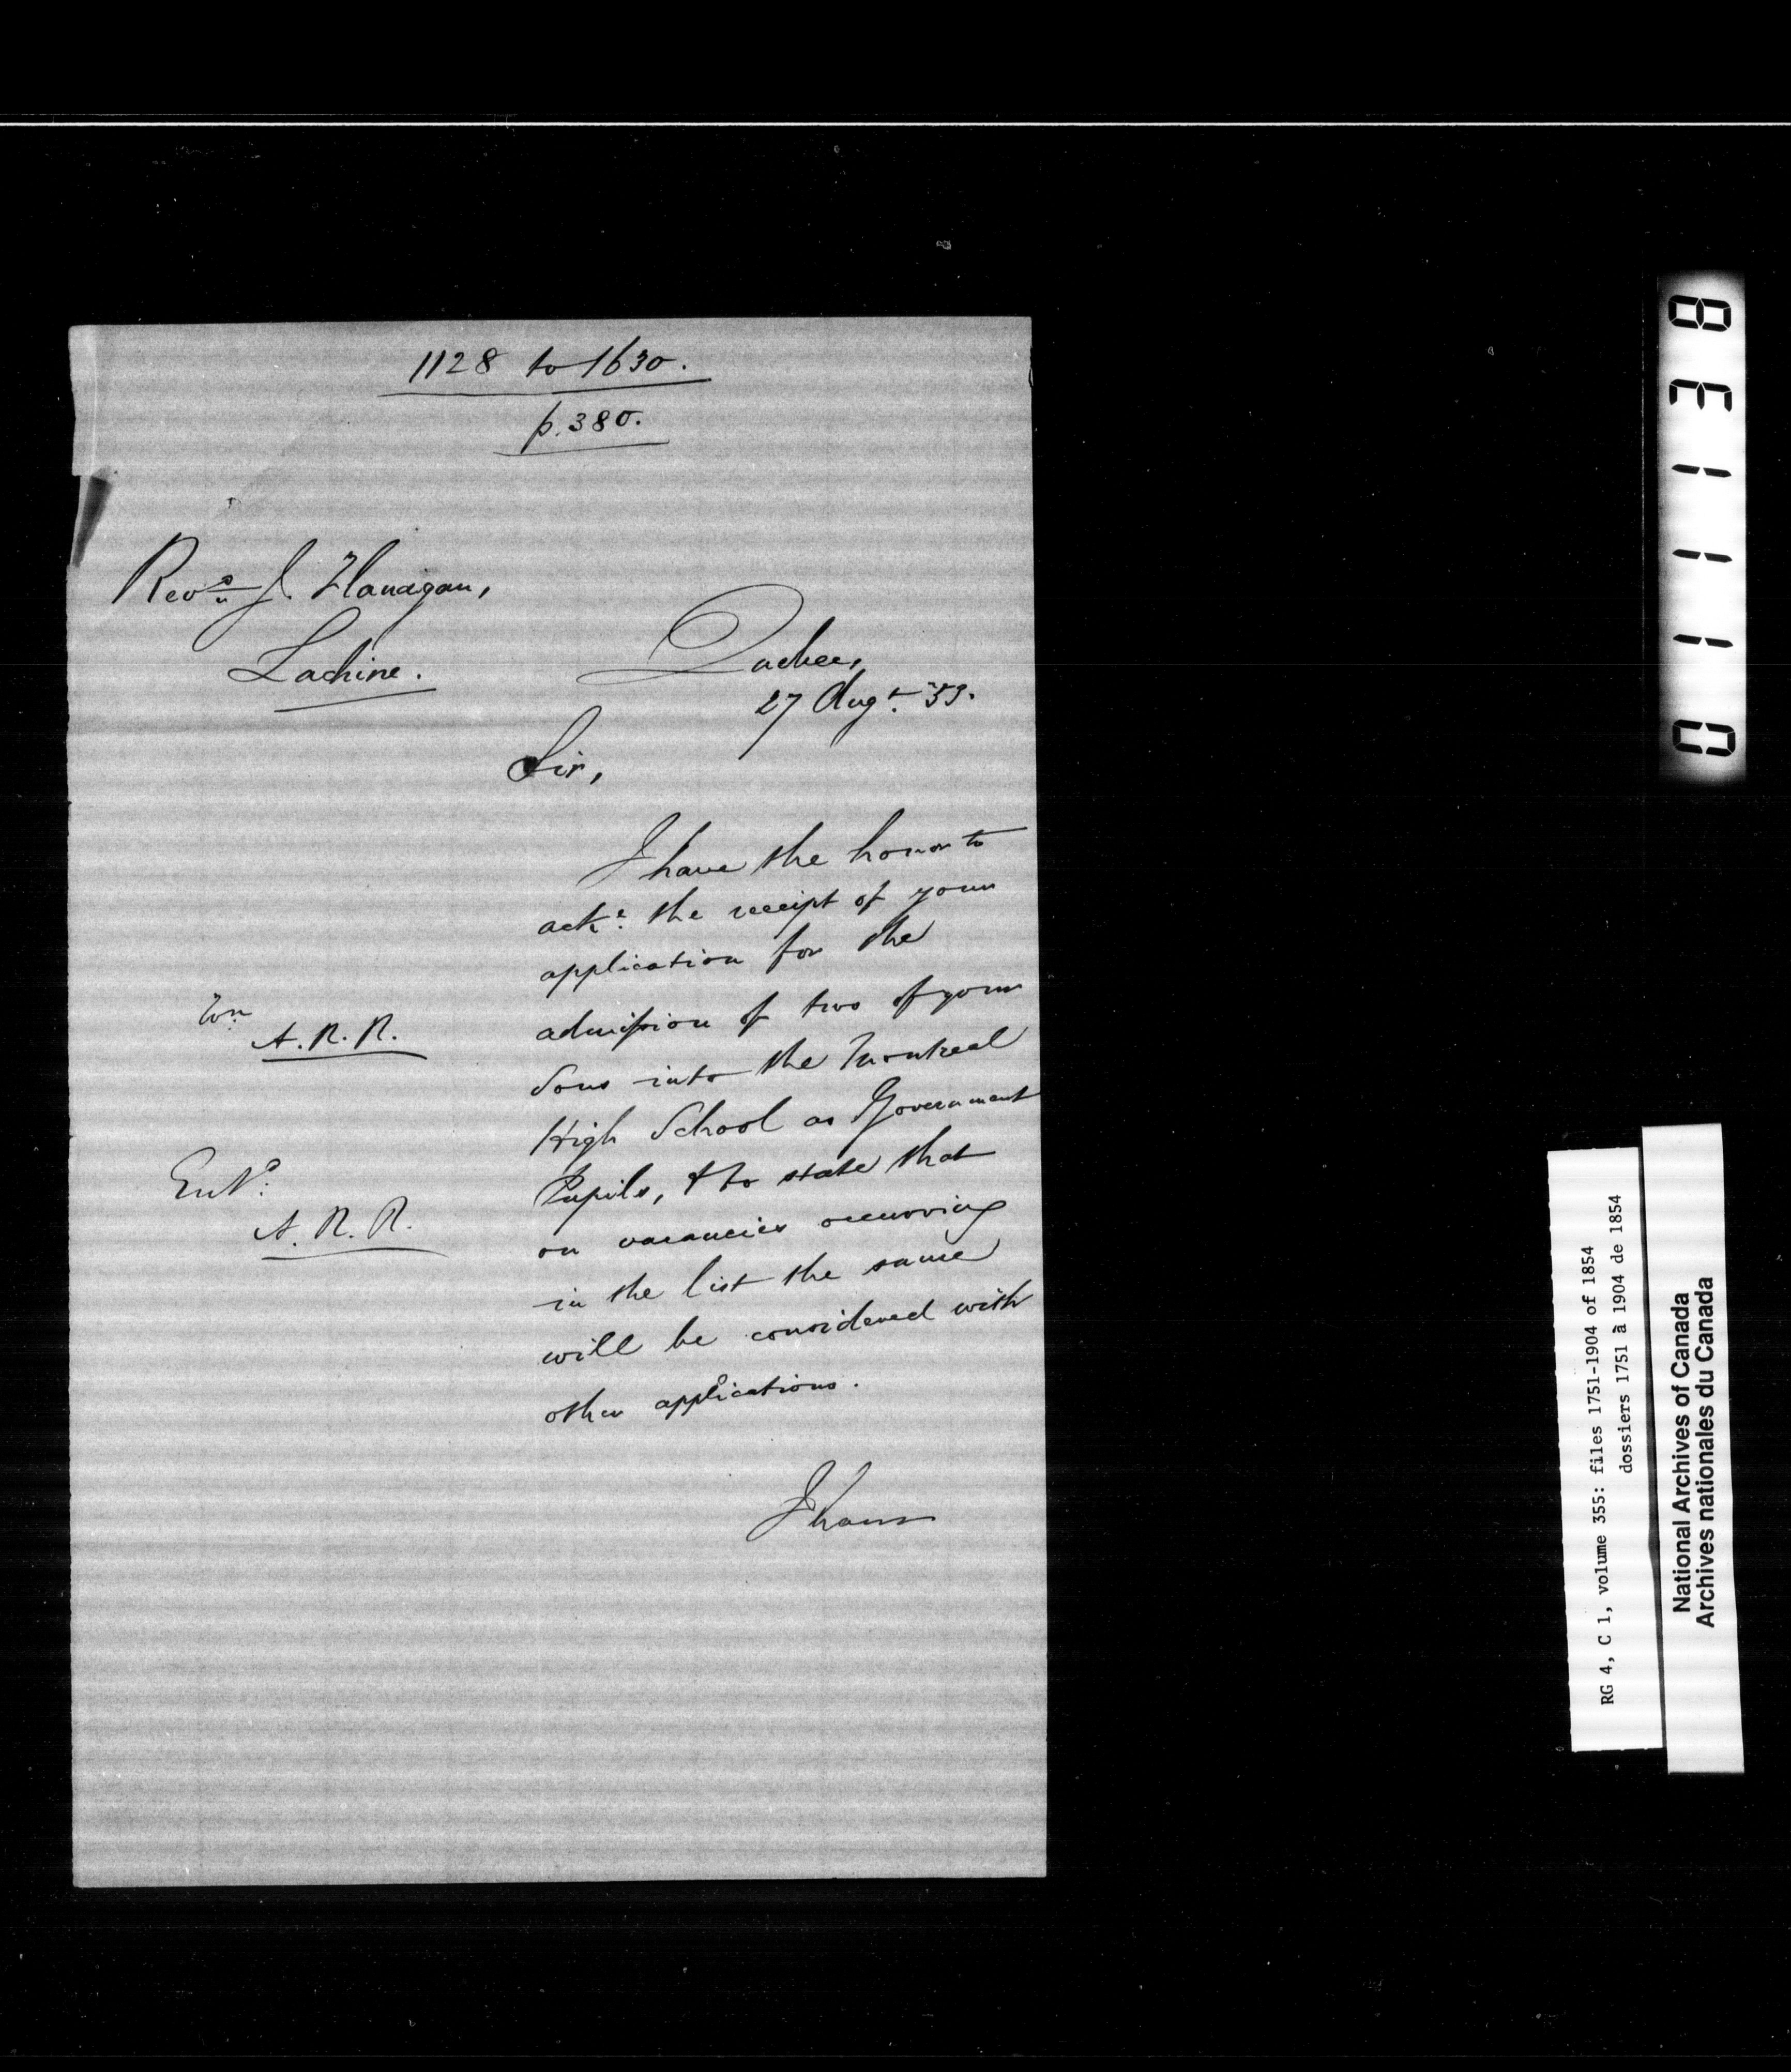 1128 to 1630.
p. 380.
Revd. J. Flanagan,
Lachine.
Quebec,
27 Augt. '53.
Sir,
I have the honor to
acke. the receipt of your
application for the
admission of two of your
Sons into the Montreal
High School as Government
Pupils, & to state that
on vacancies occurring
in the list the same
will be considered with
other applications.
I have
A. R. R.
Entd:
A. R. R.
011138
RG 4, C 1, volume 355: files 1751-1904 of 1854
dossiers 1751 à 1904 de 1854
National Archives of Canada
Archives nationales du Canada